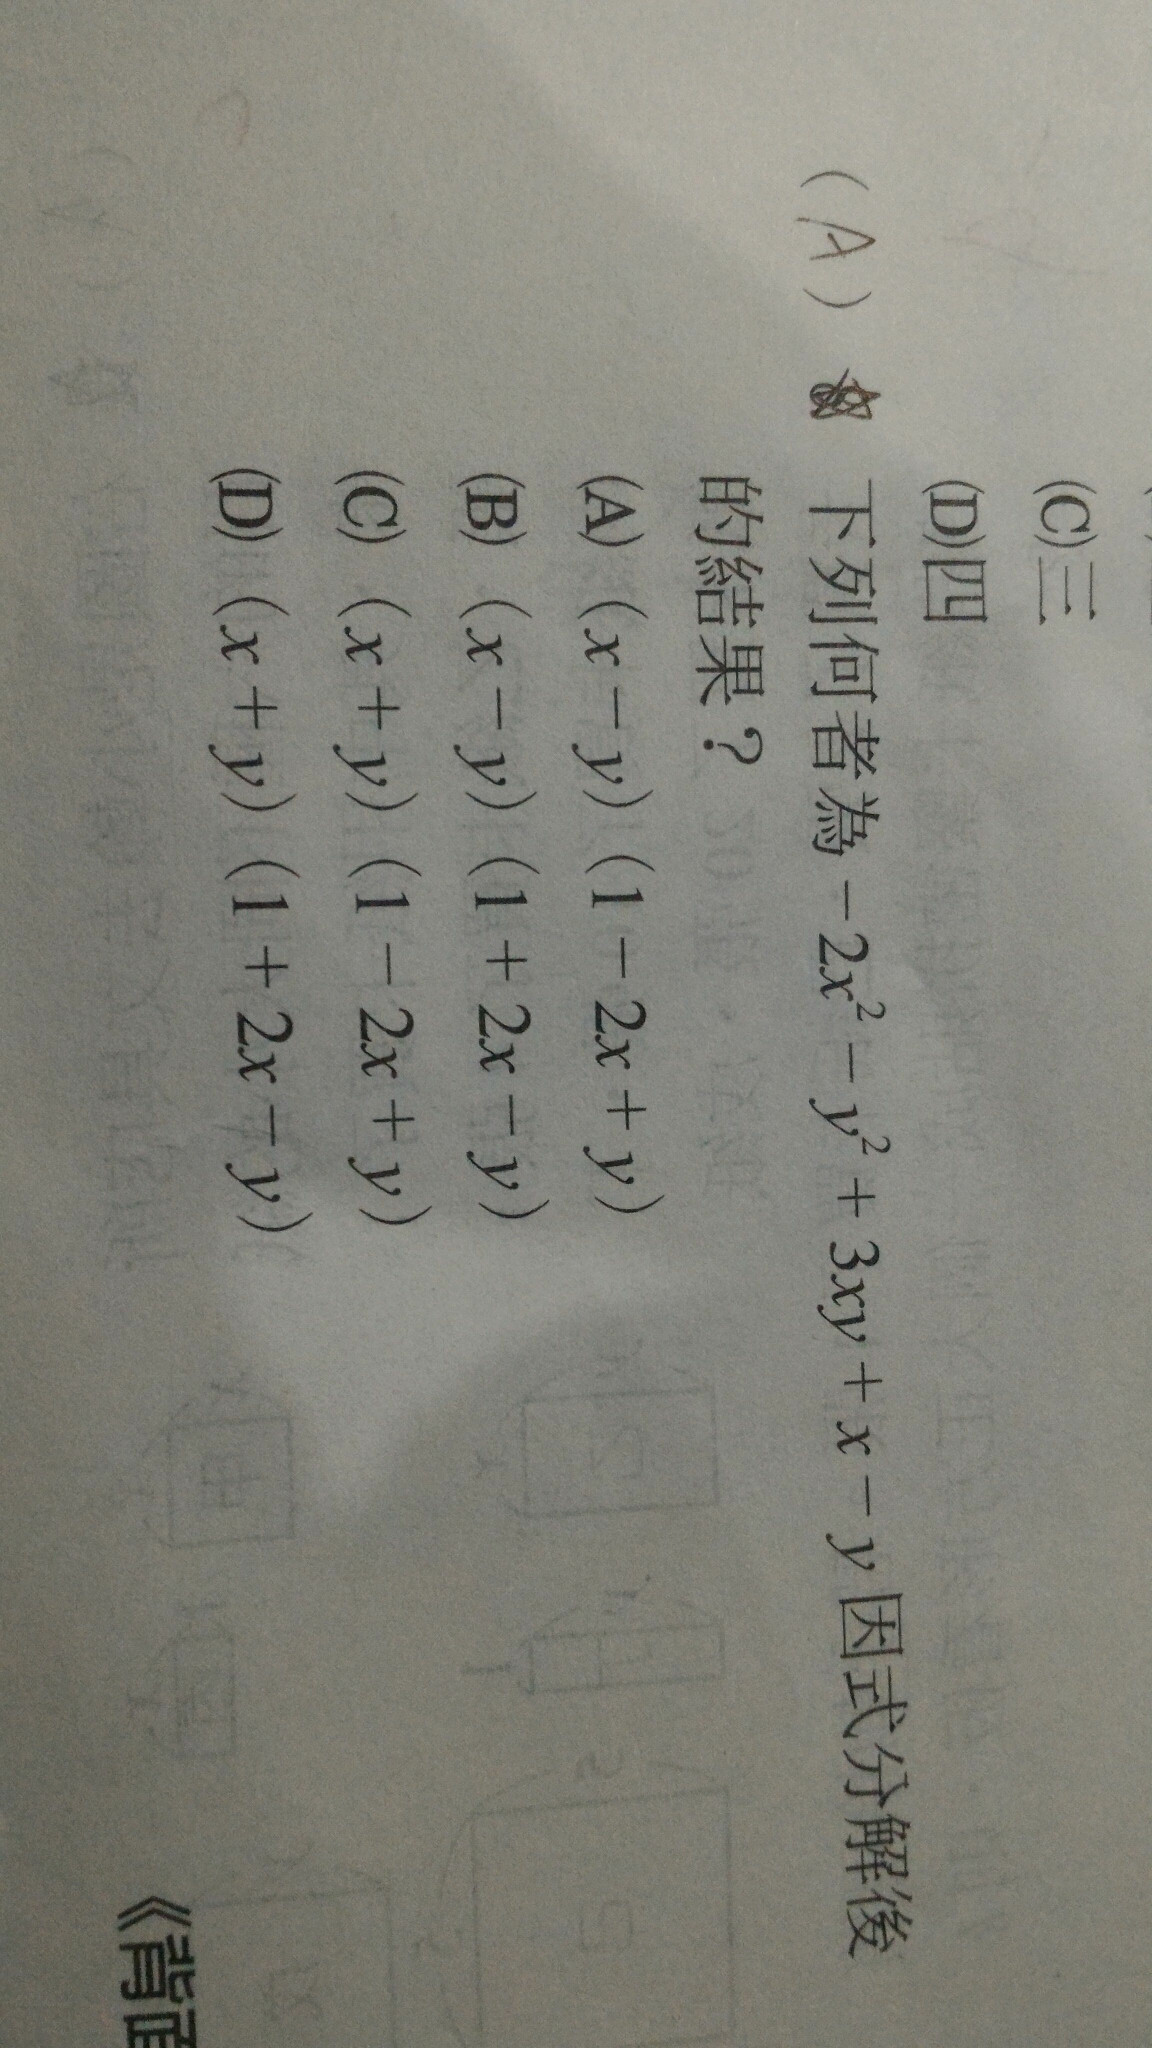 (C)三
(D)四
( A ) 下列何者為 −2x² − y² + 3xy + x − y 因式分解後
的結果？
(A) (x − y) (1 − 2x + y)
(B) (x − y) (1 + 2x − y)
(C) (x + y) (1 − 2x + y)
(D) (x + y) (1 + 2x − y)
《背面